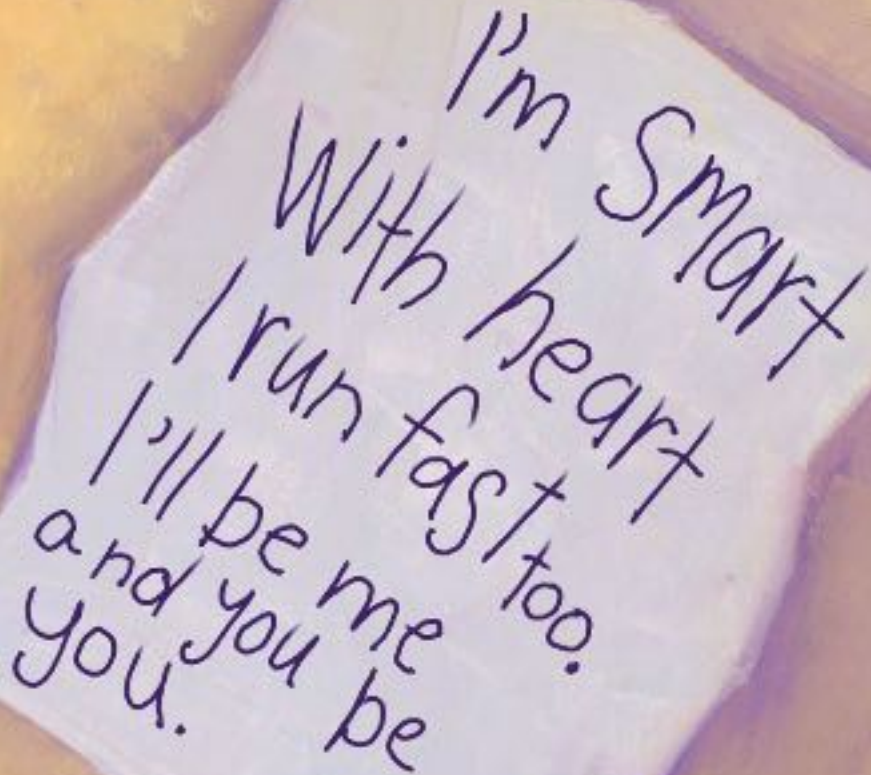 I'm Smart
With heart
I run fast too.
I'll be me
and you be
you.